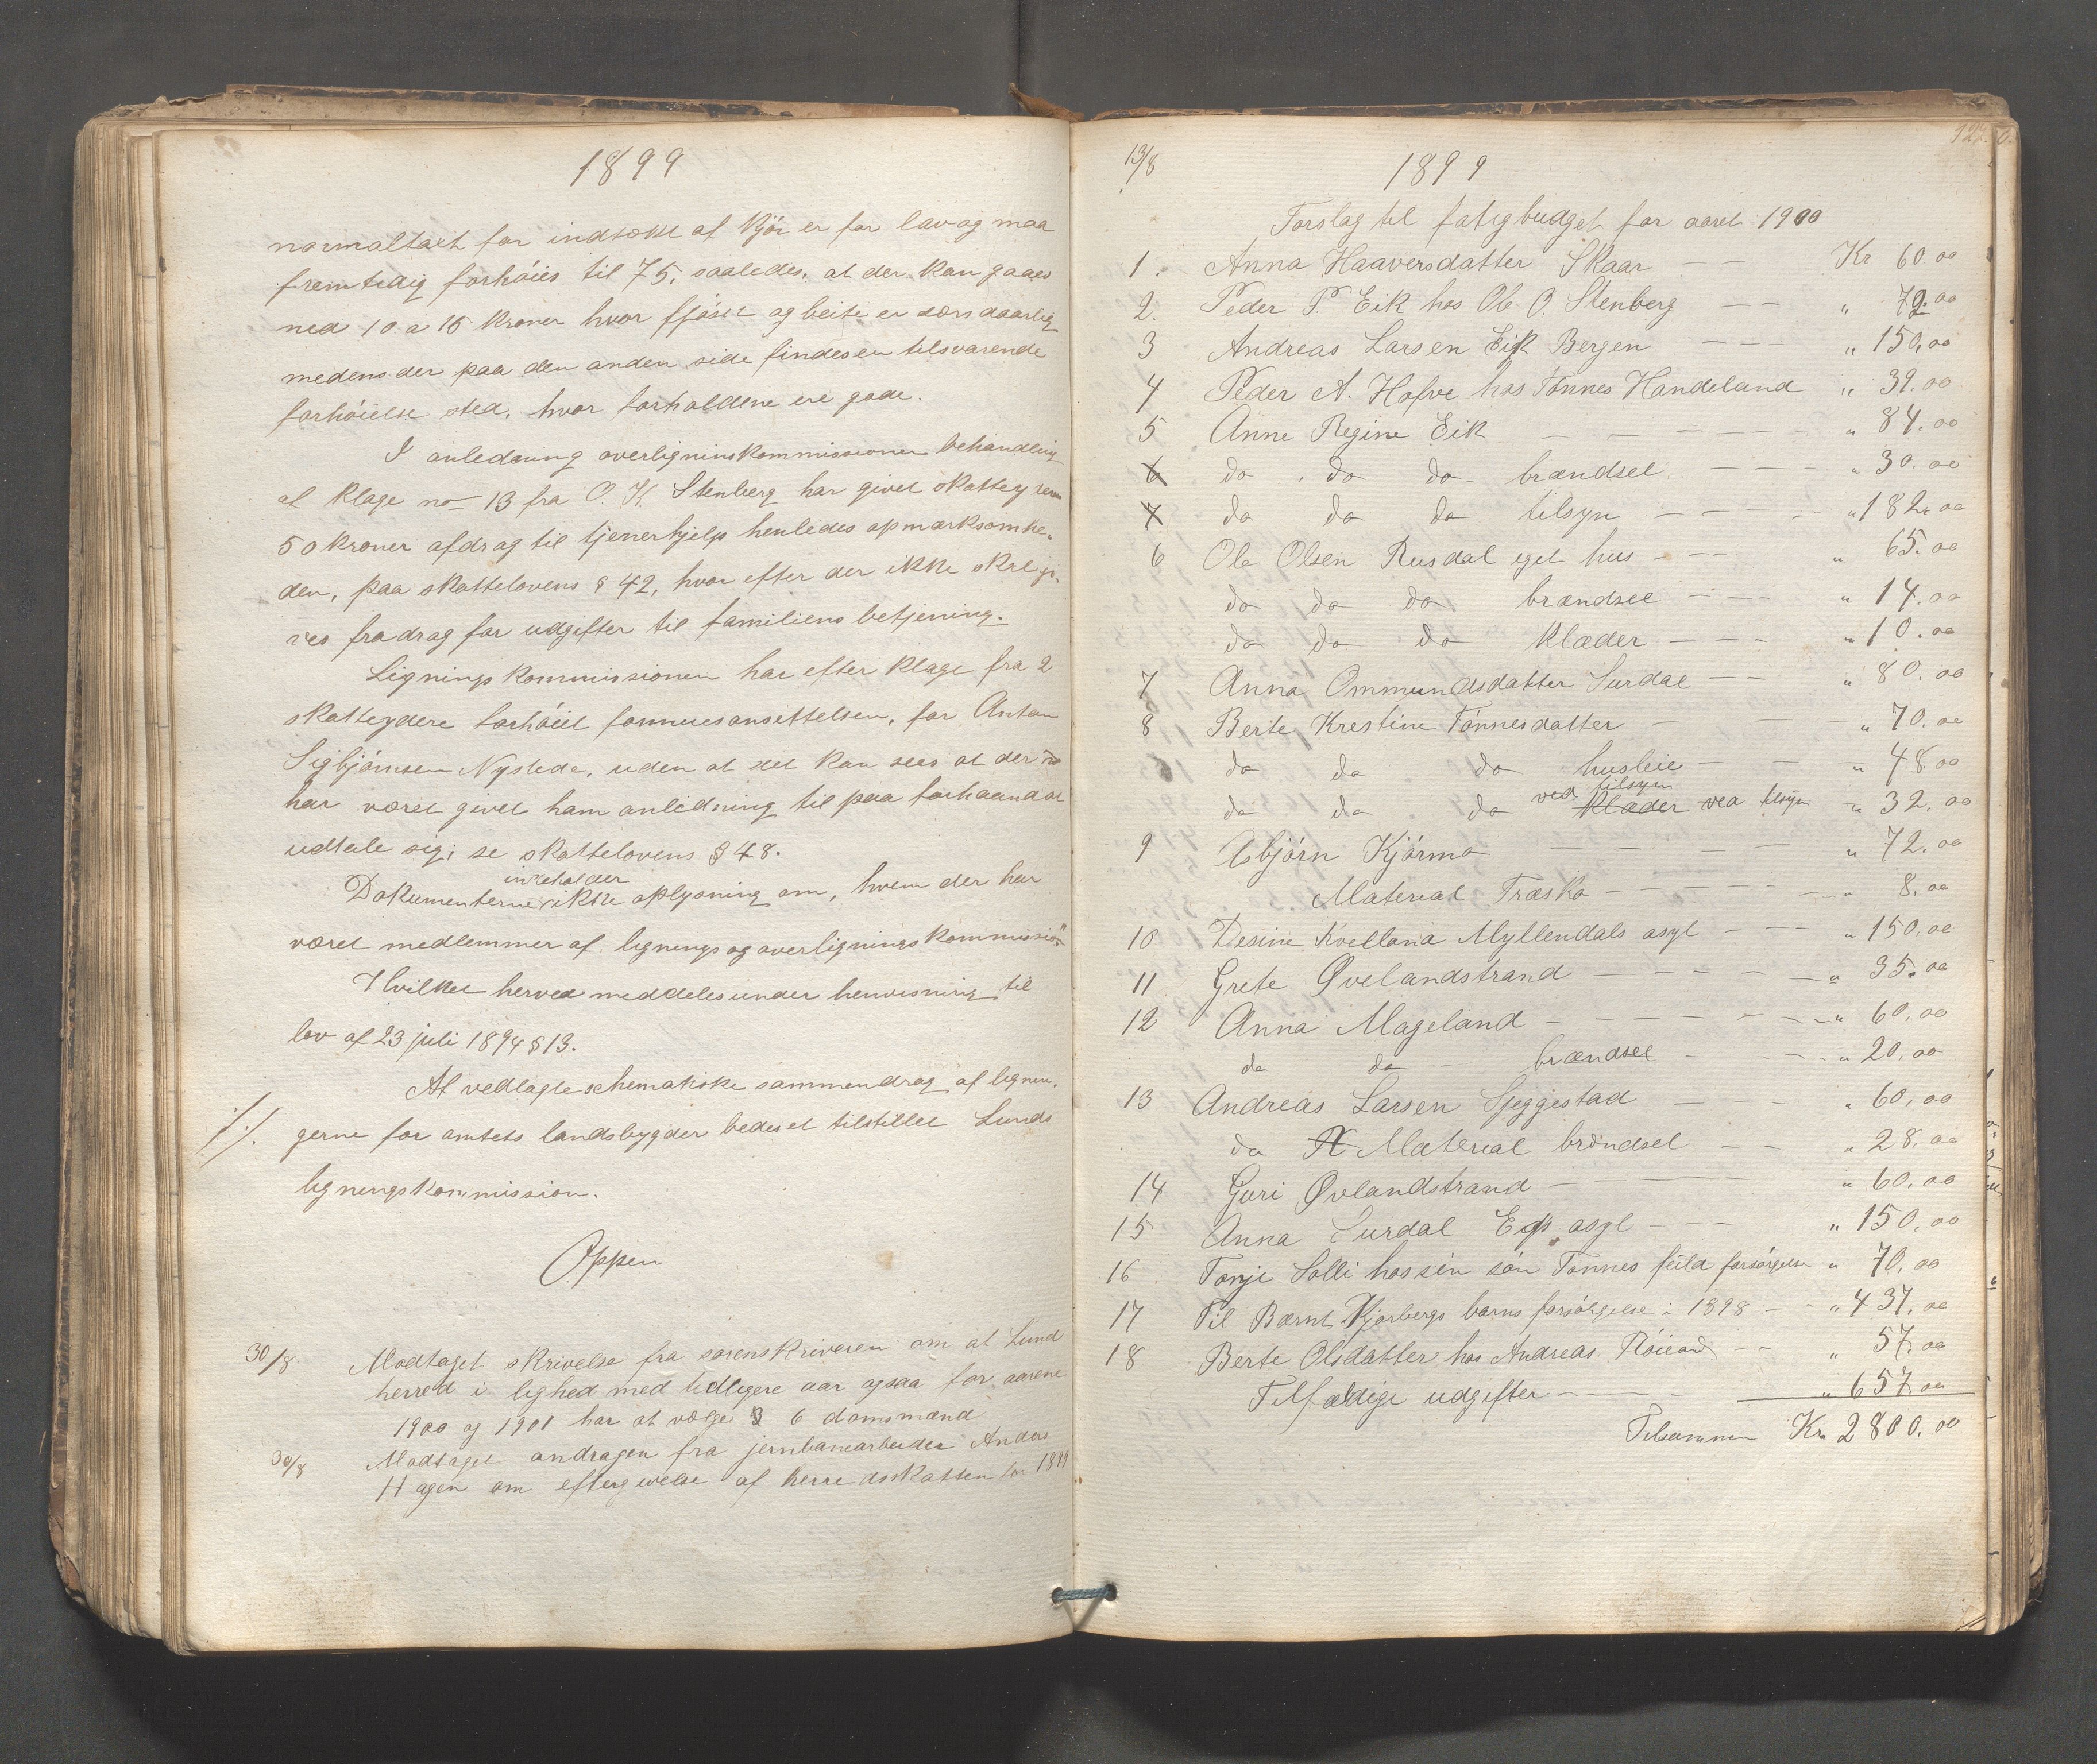 1899
normaltaxt for indtækt af kjör er for lav og maa
fremtidig forhöies til 75, saaledes, at der kan gaaes
ned 10 a 15 kroner hvor fjöset og beite er særs daarlig
medens der paa den anden side findes en tilsvarende
forhöielse sted, hvor forholdene ere gode.
I anledning overligninskommissionen behandling
af klage no 13 fra O. H. Stenberg har givet skatteyderen
50 kroner afdrag til tjenerhjelp henledes opmærksomhe-
den, paa skattelovens § 42, hvor efter der ikke skal gi-
ves fradrag for udgifter til familiens betjening.
Ligningskommissionen har efter klage fra 2
skatteydere forhöiet formuesansettelsen, for Anton
Sigbjörnsen Nystede, uden at det kan sees at der
har været givet ham anledning til paa forhaand at
udtale sig; se skattelovens § 48.
inneholder
Dokumenterne ikke oplysning om, hvem der har
været medlemmer af lignings og overligningskommission
Hvilket herved meddeles under henvisning til
lov af 23 juli 1894 § 13.
At vedlagte schematiske sammendrag af lignin-
./. gerne for amtets landsbygder bedes et tilstillet Lunds
ligningskommission.
Oppen
30/8 Modtaget skrivelse fra sorenskriveren om at Lund
herred i lighed med tidligere aar ogsaa for aarene
1900 og 1901 har at vælge 6 domsmænd
30/8 Modtaget andragen fra jernbanearbeider Anders
Hagen om eftergivelse af herredsskatten for 1899
13/8 1899
Forslag til fatigbudget for aaret 1900
1. Anna Haaversdatter Skaar — — Kr 60.00
2. Peder P. Eik hos Ole O. Stenberg — — " 72.00
3 Andreas Larsen Eik Bergen — — — " 150.00
4 Peder A. Hafve hos Tönnes Handeland " 39.00
5 Anne Regine Eik — — — — — " 84.00
6 do do do brændsel — — — " 30.00
7 do do do tilsyn — — — — " 182.00
6 Ole Olsen Rusdal eget hus — — — " 65.00
do do do brændsel — — — " 14.00
do do do klæder — — — " 10.00
7 Anna Ommundsdatter Surdal — — " 80.00
8 Berte Krestine Tönnesdatter — " 70.00
do do do husleie — — — " 48.00
ved tilsyn
do do do klæder ved tilsyn " 32.00
9 Asbjörn Kjörmo — — — — " 72.00
Material Træsko — — — — — " 8.00
10 Desine Kvellana Myllendals asyl — — — " 150.00
11 Grete Øvelandstrand — — — — — " 35.00
12 Anna Mageland — — — — — — " 60.00
do do brændsel — — — " 20.00
13 Andreas Larsen Sjeggestad — — — " 60.00
do Material bröndsel — — " 28.00
14 Guri Øvlandstrand — — — — — " 60.00
15 Anna Surdal Egs asyl — — — " 150.00
16 Tonje Solli hos sin sön Tönnes fuld forsörgelse " 70.00
17 Til Bærnt Kjorbergs barns forsörgelse i 1898 — — " 437.00
18 Berte Olsdatter hos Andreas Röiland — — " 57.00
Tilfældige udgifter — — — — " 657.00
Tilsammen Kr. 2800.00